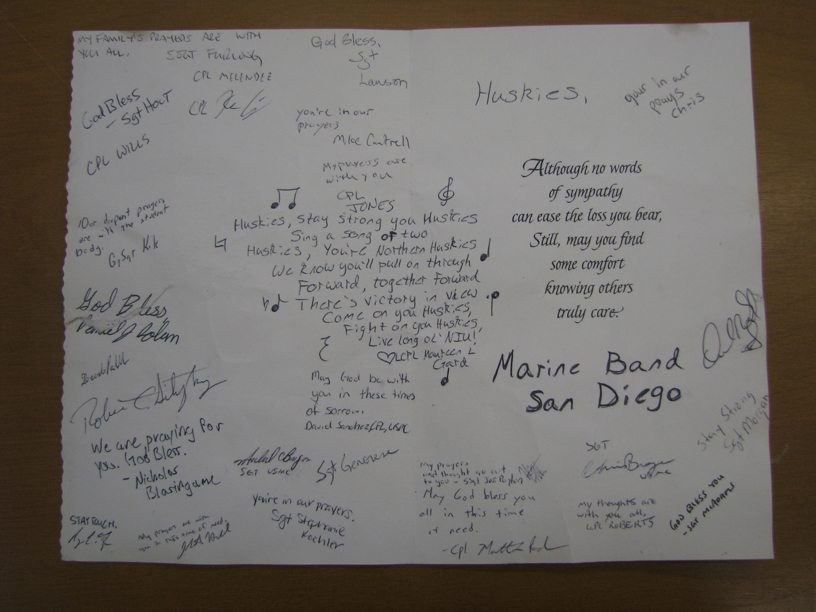 MY FAMILY'S PRAYERS ARE WITH
YOU ALL. SGT FURLONG
CPL MELENDEZ
God Bless,
Sgt
Lawson
Huskies,
your in our
prays
Chris
God Bless
- Sgt Holt
CPL
you're in our
prayers
Mike Cantrell
CPL WILLS
My prayers are
with you
CPL
JONES
Although no words
of sympathy
can ease the loss you bear,
Still, may you find
some comfort
knowing others
truly care.
Our deepest prayers
are with the student
body.
GySgt
Huskies, Stay strong you Huskies
Sing a song of two
Huskies, You're Northern Huskies
We know you'll pull on through
Forward, together forward
There's victory in view
Come on you Huskies,
Fight on you Huskies,
Live long ol' NIU!
♡ CPL Maureen L
God Bless,
Daniel J
Marine Band
San Diego
May God be with
you in these times
of sorrow.
Daniel Sanchez/CPL, USMC
Robert
We are praying for
you. God Bless.
- Nicholas
Blasingame
SGT USMC
Sgt Genovese
you're in our prayers.
Sgt Stephanie
Koehler
STAY TOUGH.
My prayers are with
you in this time of need.
My prayers
and thought go out
to you - Sgt
May God bless you
all in this time
of need.
- Cpl
SGT
my thoughts are
with you all.
CPL ROBERTS
Stay Strong
Sgt Morgan
GOD BLESS YOU